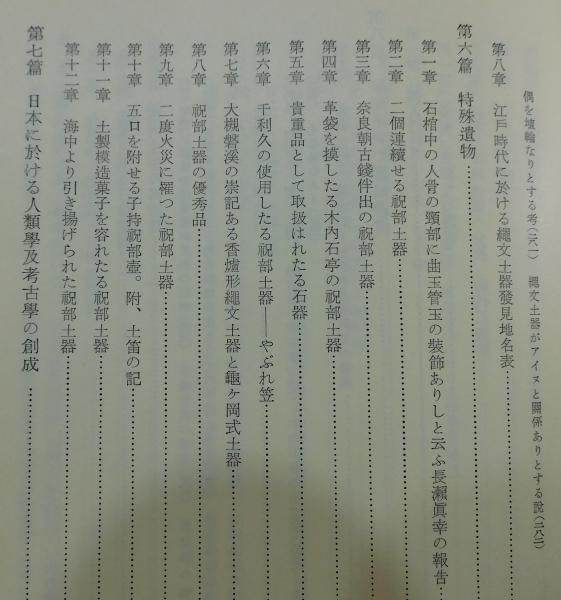 偶を埴輪なりとする考(二八一) 繩文土器がアイヌと關係ありとする說(二八二)
第八章 江戸時代に於ける繩文土器發見地名表
第六篇 特殊遺物
第一章 石棺中の人骨の頸部に曲玉管玉の裝飾ありしと云ふ長瀬眞幸の報告
第二章 二個連續せる祝部土器
第三章 奈良朝古錢伴出の祝部土器
第四章 革袋を摸したる木内石亭の祝部土器
第五章 貴重品として取扱はれたる石器
第六章 千利久の使用したる祝部土器――やぶれ笠
第七章 大槻磐溪の崇記ある香爐形繩文土器と龜ヶ岡式土器
第八章 祝部土器の優秀品
第九章 二度火災に罹つた祝部土器
第十章 五口を附せる子持祝部壺。附、土笛の記
第十一章 土製模造菓子を容れたる祝部土器
第十二章 海中より引き揚げられた祝部土器
第七篇 日本に於ける人類學及考古學の創成